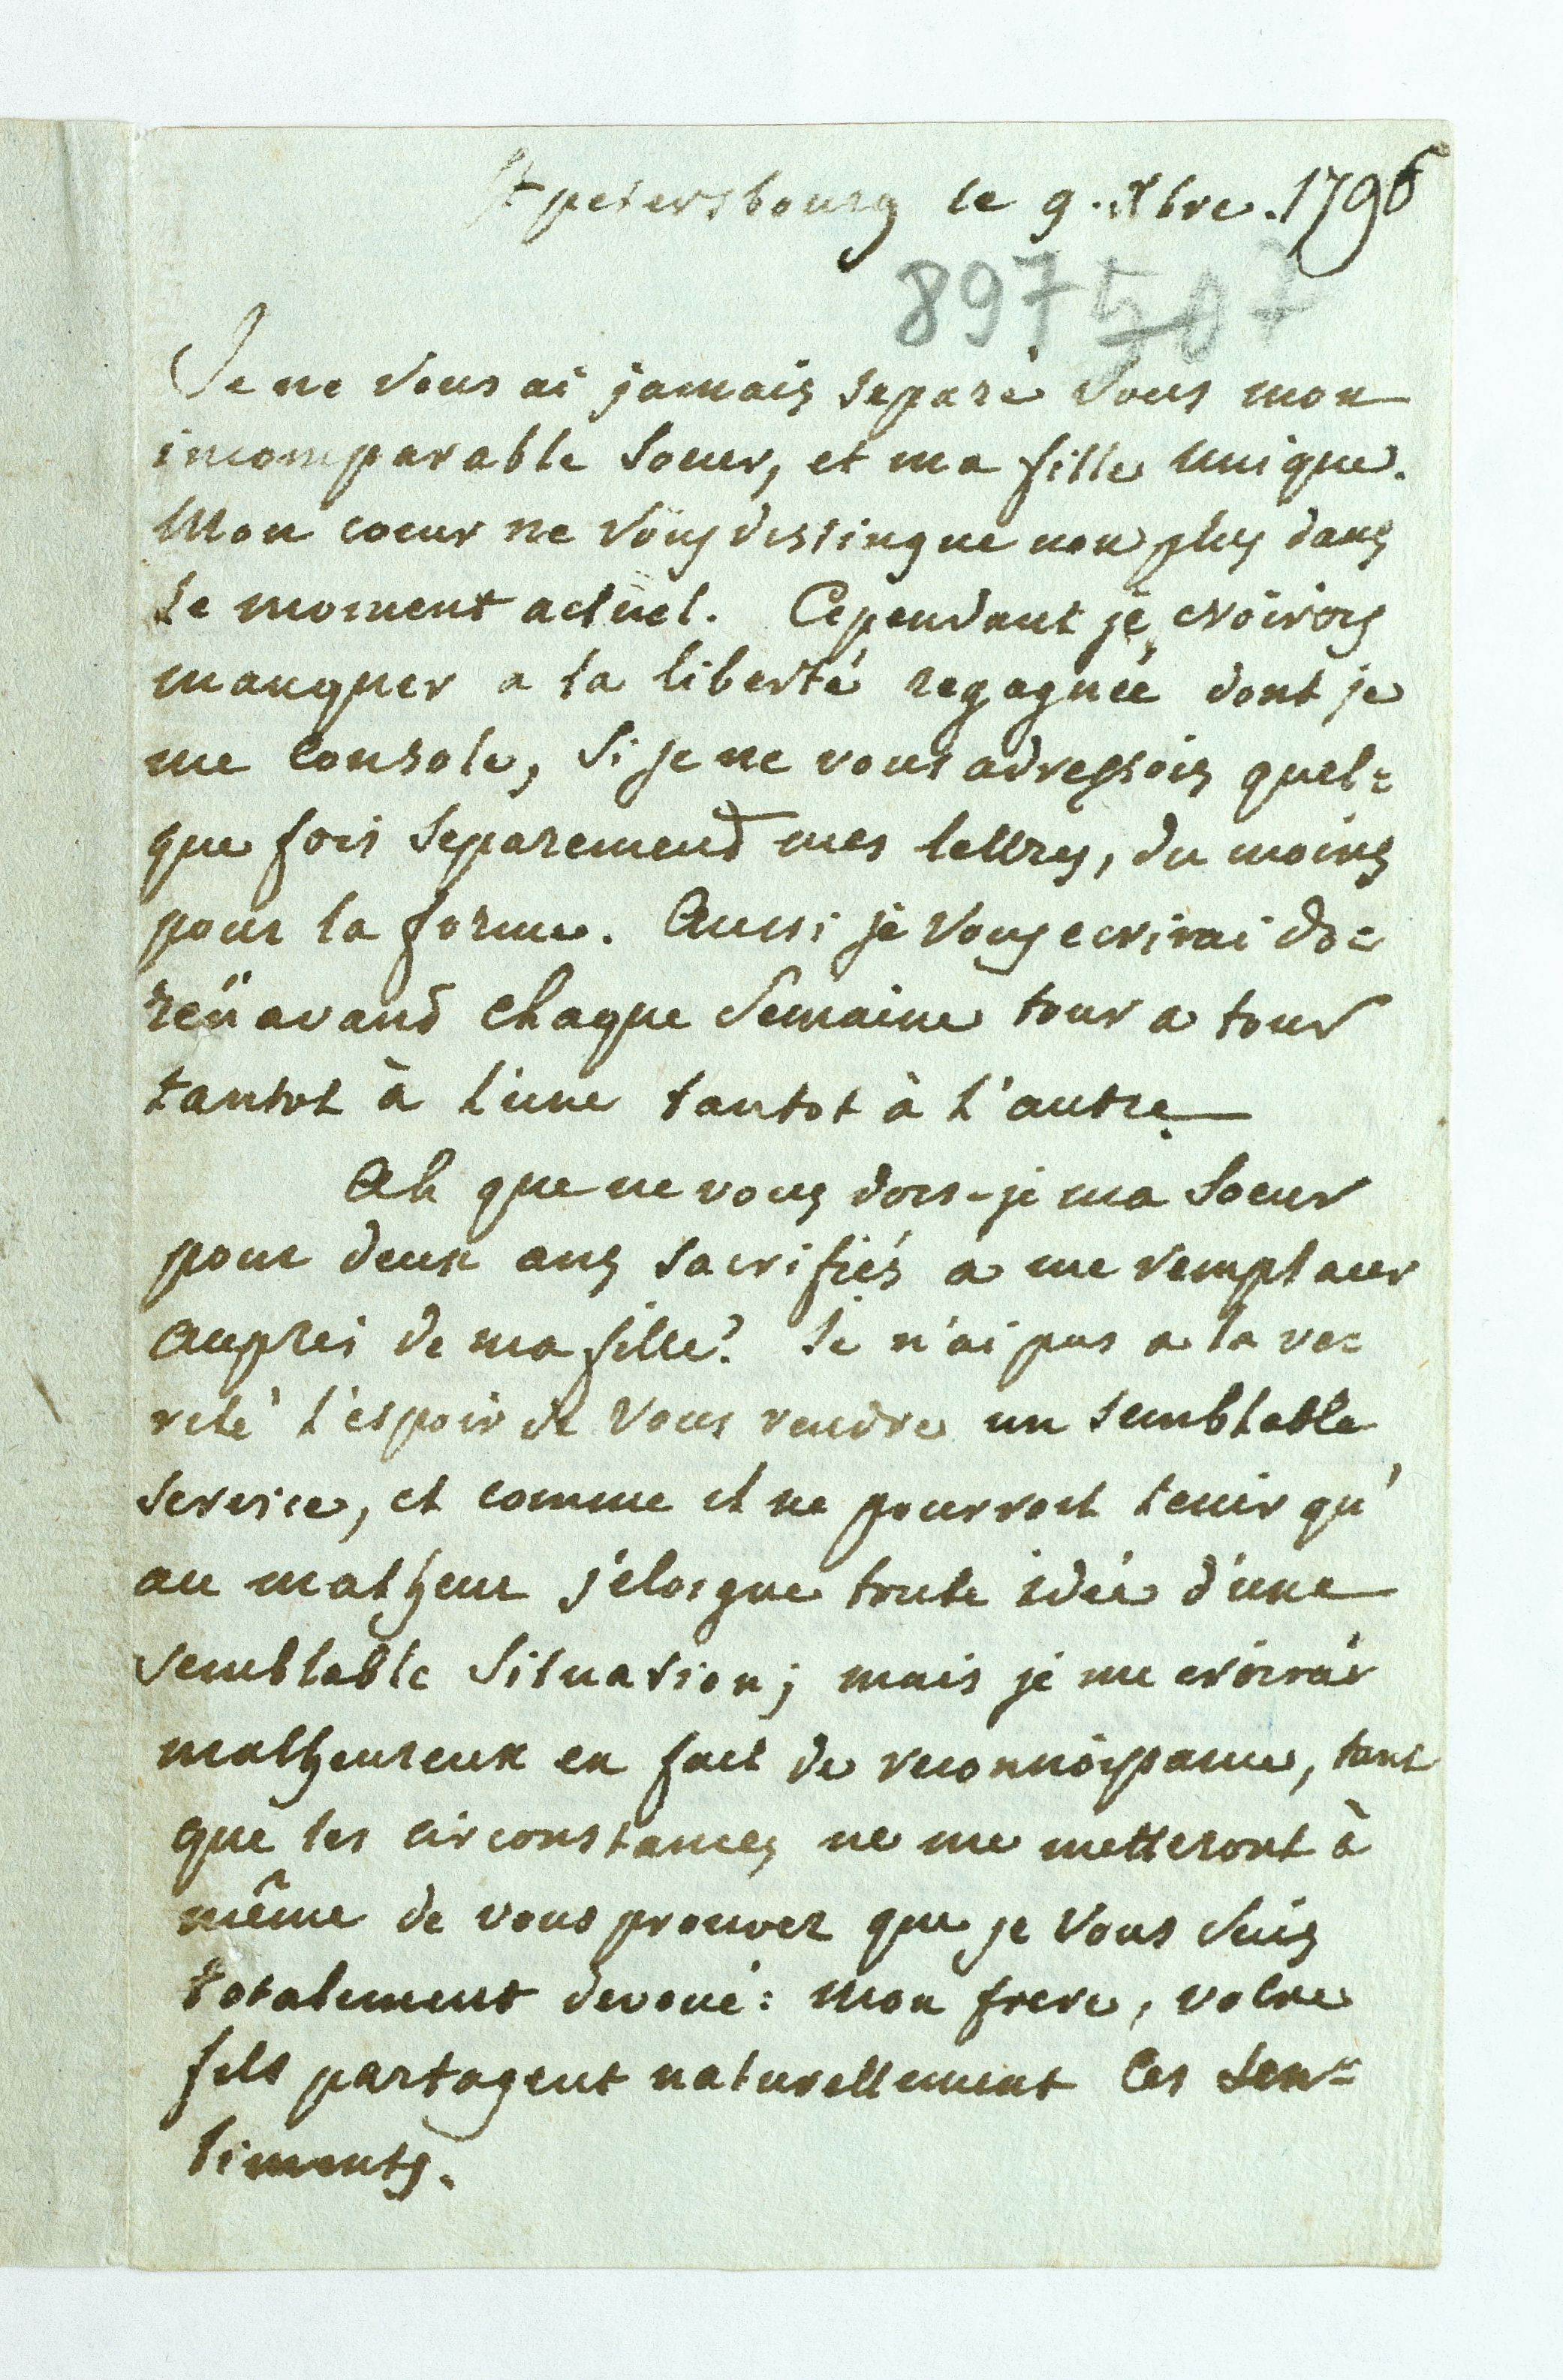 St petersbourg le 9. Xbre. 1796
897 507
Je ne vous ai jamais separé vous mon
incomparable soeur, et ma fille unique.
Mon coeur ne vous distingue non plus dans
le moment actuel. Cependant je croirois
manquer a la liberté regagnée dont je
me console, si je ne vous adressois quel=
que fois separement mes lettres, du moins
pour la forme. Aussi je vous ecrirai do=
renavand chaque semaine tour a tour
tantot à l'une tantot à l'autre.
Ah que ne vous dois-je ma soeur
pour deux ans sacrifiés a me remplacer
aupres de ma fille? Je n'ai pas a la ve=
rité l'espoir de vous rendre un semblable
service, et comme il ne pourroit tenir qu'
au malheur j'éloigne toute idée d'une
semblable situation; mais je me croirai
malheureux en fait de reconnoissance, tant
que les circonstances ne me metteront à
même de vous prouver que je vous suis
totalement devoué: mon frere, votre
fils partagent naturellement ces sen=
timents.